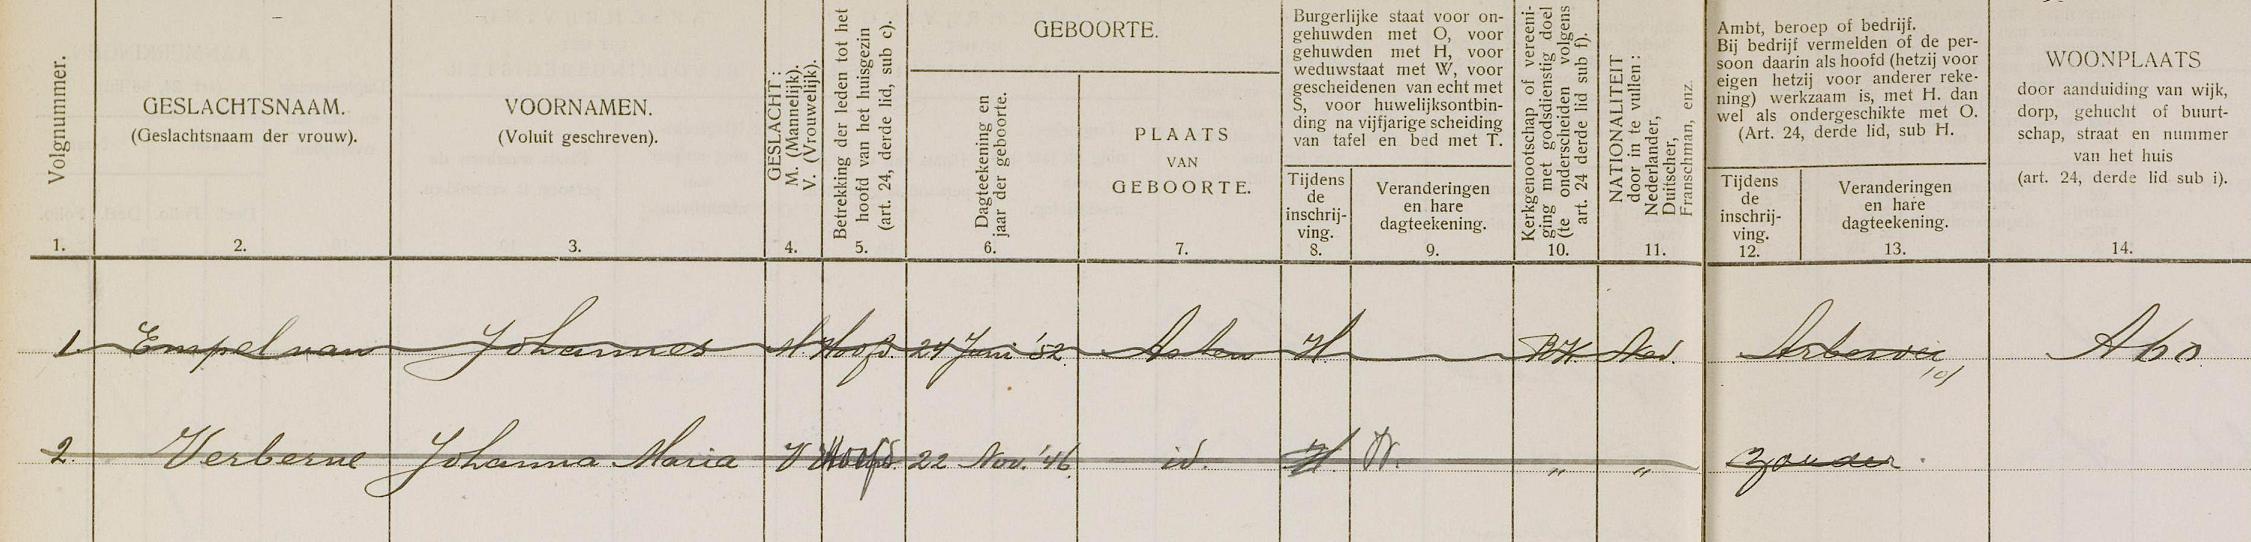 Volgnummer.
1.
GESLACHTSNAAM.
(Geslachtsnaam der vrouw).
2.
VOORNAMEN.
(Voluit geschreven).
3.
GESLACHT:
M. (Mannelijk).
V. (Vrouwelijk).
4.
Betrekking der leden tot het
hoofd van het huisgezin
(art. 24, derde lid, sub c).
5.
GEBOORTE.
Dagteekening en
jaar der geboorte.
6.
PLAATS
VAN
GEBOORTE.
7.
Burgerlijke staat voor on-
gehuwden met O, voor
gehuwden met H, voor
weduwstaat met W, voor
gescheidenen van echt met
S, voor huwelijksontbin-
ding na vijfjarige scheiding
van tafel en bed met T.
Tijdens
de
inschrij-
ving.
8.
Veranderingen
en hare
dagteekening.
9.
Kerkgenootschap of vereeni-
ging met godsdienstig doel
(te onderscheiden volgens
art. 24 derde lid sub f).
10.
NATIONALITEIT
door in te vullen:
Nederlander,
Duitscher,
Franschman, enz.
11.
Ambt, beroep of bedrijf.
Bij bedrijf vermelden of de per-
soon daarin als hoofd (hetzij voor
eigen hetzij voor anderer reke-
ning) werkzaam is, met H. dan
wel als ondergeschikte met O.
(Art. 24, derde lid, sub H.
Tijdens
de
inschrij-
ving.
12.
Veranderingen
en hare
dagteekening.
13.
WOONPLAATS
door aanduiding van wijk,
dorp, gehucht of buurt-
schap, straat en nummer
van het huis
(art. 24, derde lid sub i).
14.
1 Empel van Johannes M Hoofd 24 Juni '52 Asten H. R.K. Ned. A 60.
2. Verberne Johanna Maria V Hoofd 22 Nov. '46 id. H. W. " " Zonder.